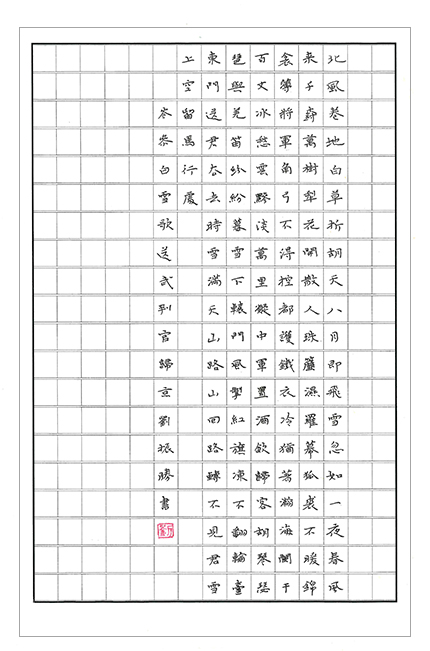 北風卷地白草折胡天八月即飛雪忽如一夜春風
來千樹萬樹梨花開散入珠簾濕羅幕狐裘不暖錦
衾薄將軍角弓不得控都護鐵衣冷猶著瀚海闌干
百丈冰愁雲黲淡萬里凝中軍置酒飲歸客胡琴琵
琶與羌笛紛紛暮雪下轅門風掣紅旗凍不翻輪臺
東門送君去去時雪滿天山路山回路轉不見君雪
上空留馬行處
岑參白雪歌送武判官歸京劉振勝書